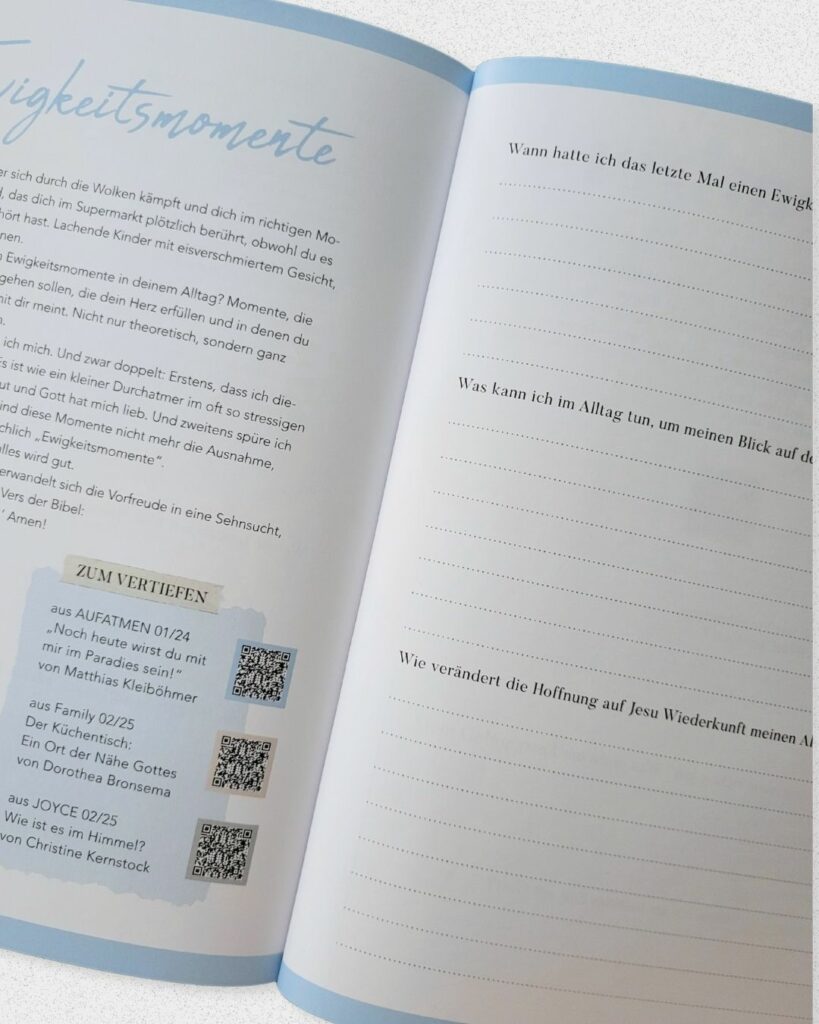 wigkeitsmomente
er sich durch die Wolken kämpft und dich im richtigen Mo-
das dich im Supermarkt plötzlich berührt, obwohl du es
hört hast. Lachende Kinder mit eisverschmiertem Gesicht,
nen.
Ewigkeitsmomente in deinem Alltag? Momente, die
gehen sollen, die dein Herz erfüllen und in denen du
mit dir meint. Nicht nur theoretisch, sondern ganz
n.
ich mich. Und zwar doppelt: Erstens, dass ich die-
Es ist wie ein kleiner Durchatmer im oft so stressigen
ut und Gott hat mich lieb. Und zweitens spüre ich
ind diese Momente nicht mehr die Ausnahme,
chlich „Ewigkeitsmomente“.
alles wird gut.
erwandelt sich die Vorfreude in eine Sehnsucht,
Vers der Bibel:
‘ Amen!
ZUM VERTIEFEN
aus AUFATMEN 01/24
„Noch heute wirst du mit
mir im Paradies sein!“
von Matthias Kleiböhmer
aus Family 02/25
Der Küchentisch:
Ein Ort der Nähe Gottes
von Dorothea Bronsema
aus JOYCE 02/25
Wie ist es im Himmel?
von Christine Kernstock
Wann hatte ich das letzte Mal einen Ewigk
Was kann ich im Alltag tun, um meinen Blick auf de
Wie verändert die Hoffnung auf Jesu Wiederkunft meinen Al